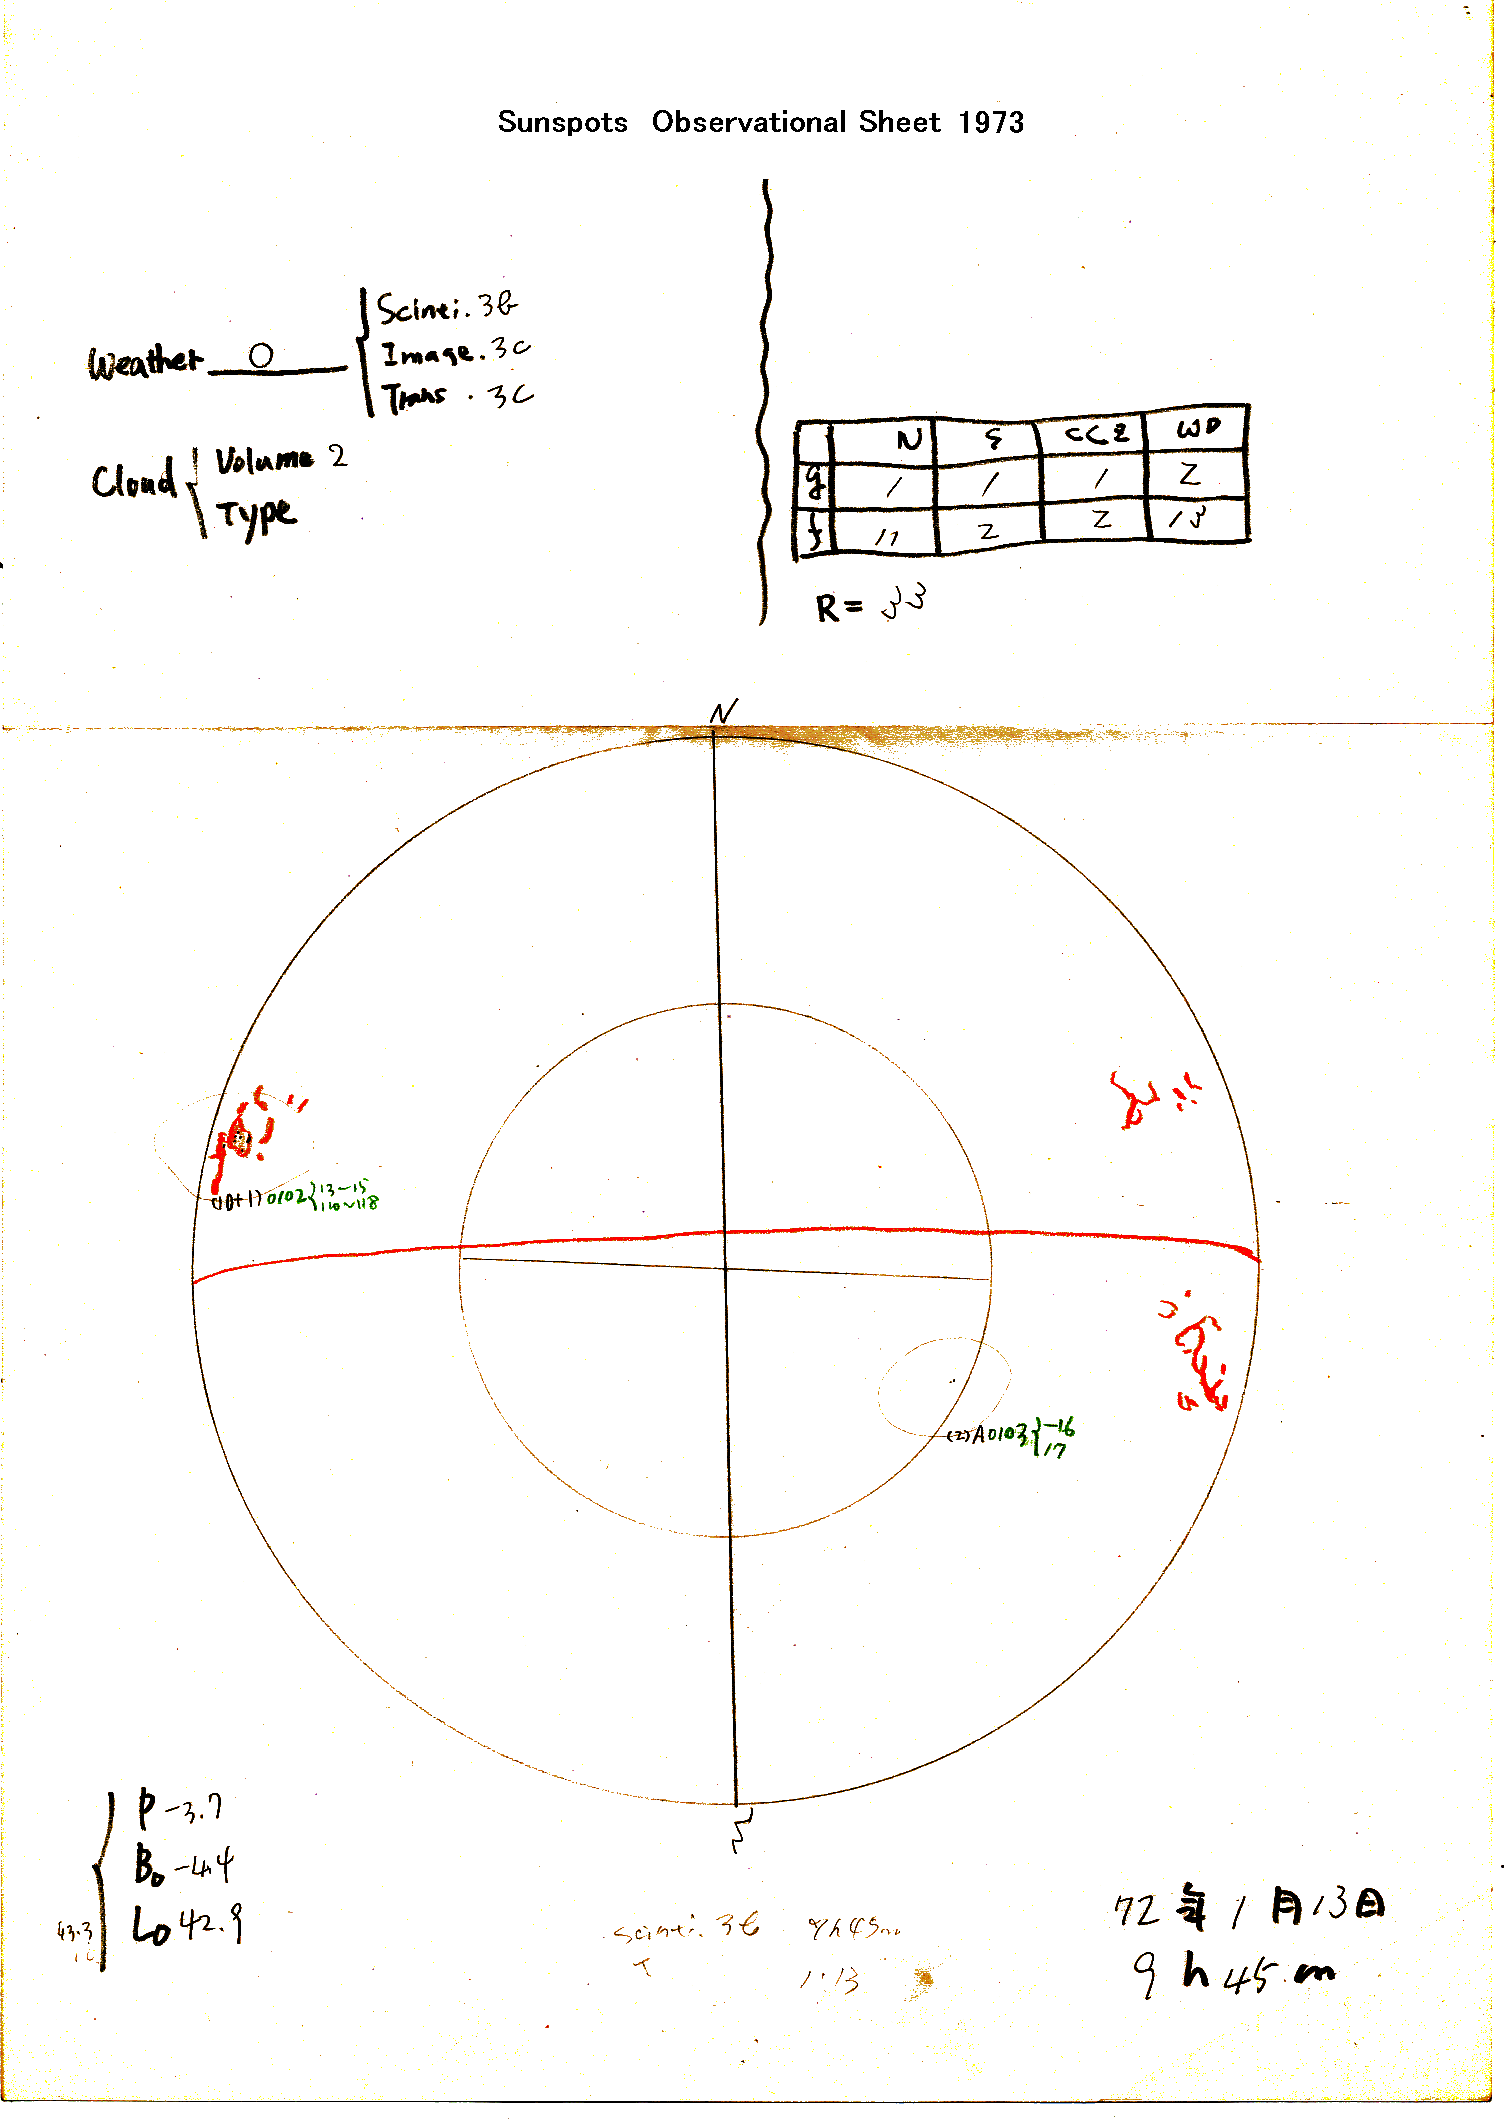 Sunspots Observational Sheet 1973
Weather O
Scinti. 3b
Image. 3c
Trans. 3c
Cloud
Volume 2
Type
N S CCZ WD
g 1 1 1 2
f 11 2 2 13
R = 33
N
0102 13-15
116~118
(2)A0103 -16
17
S
P -3.7
B0 -4.4
L0 42.9
43.3
Scinti. 3b 9h45m
1.13
72年1月13日
9h45m